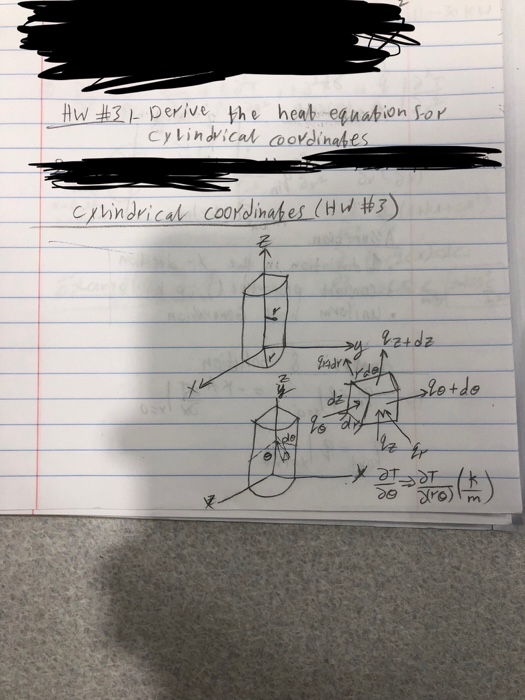 HW #31- Derive the heat equation for
cylindrical coordinates
cylindrical coordinates (HW #3)
z
r
r
y
x
qz+dz
qr+dr
rdθ
dz
qθ+dθ
qθ
dr
qz
qr
z
y
dθ
θ
x
∂T/∂θ ⇒ ∂T/∂(rθ) (k/m)